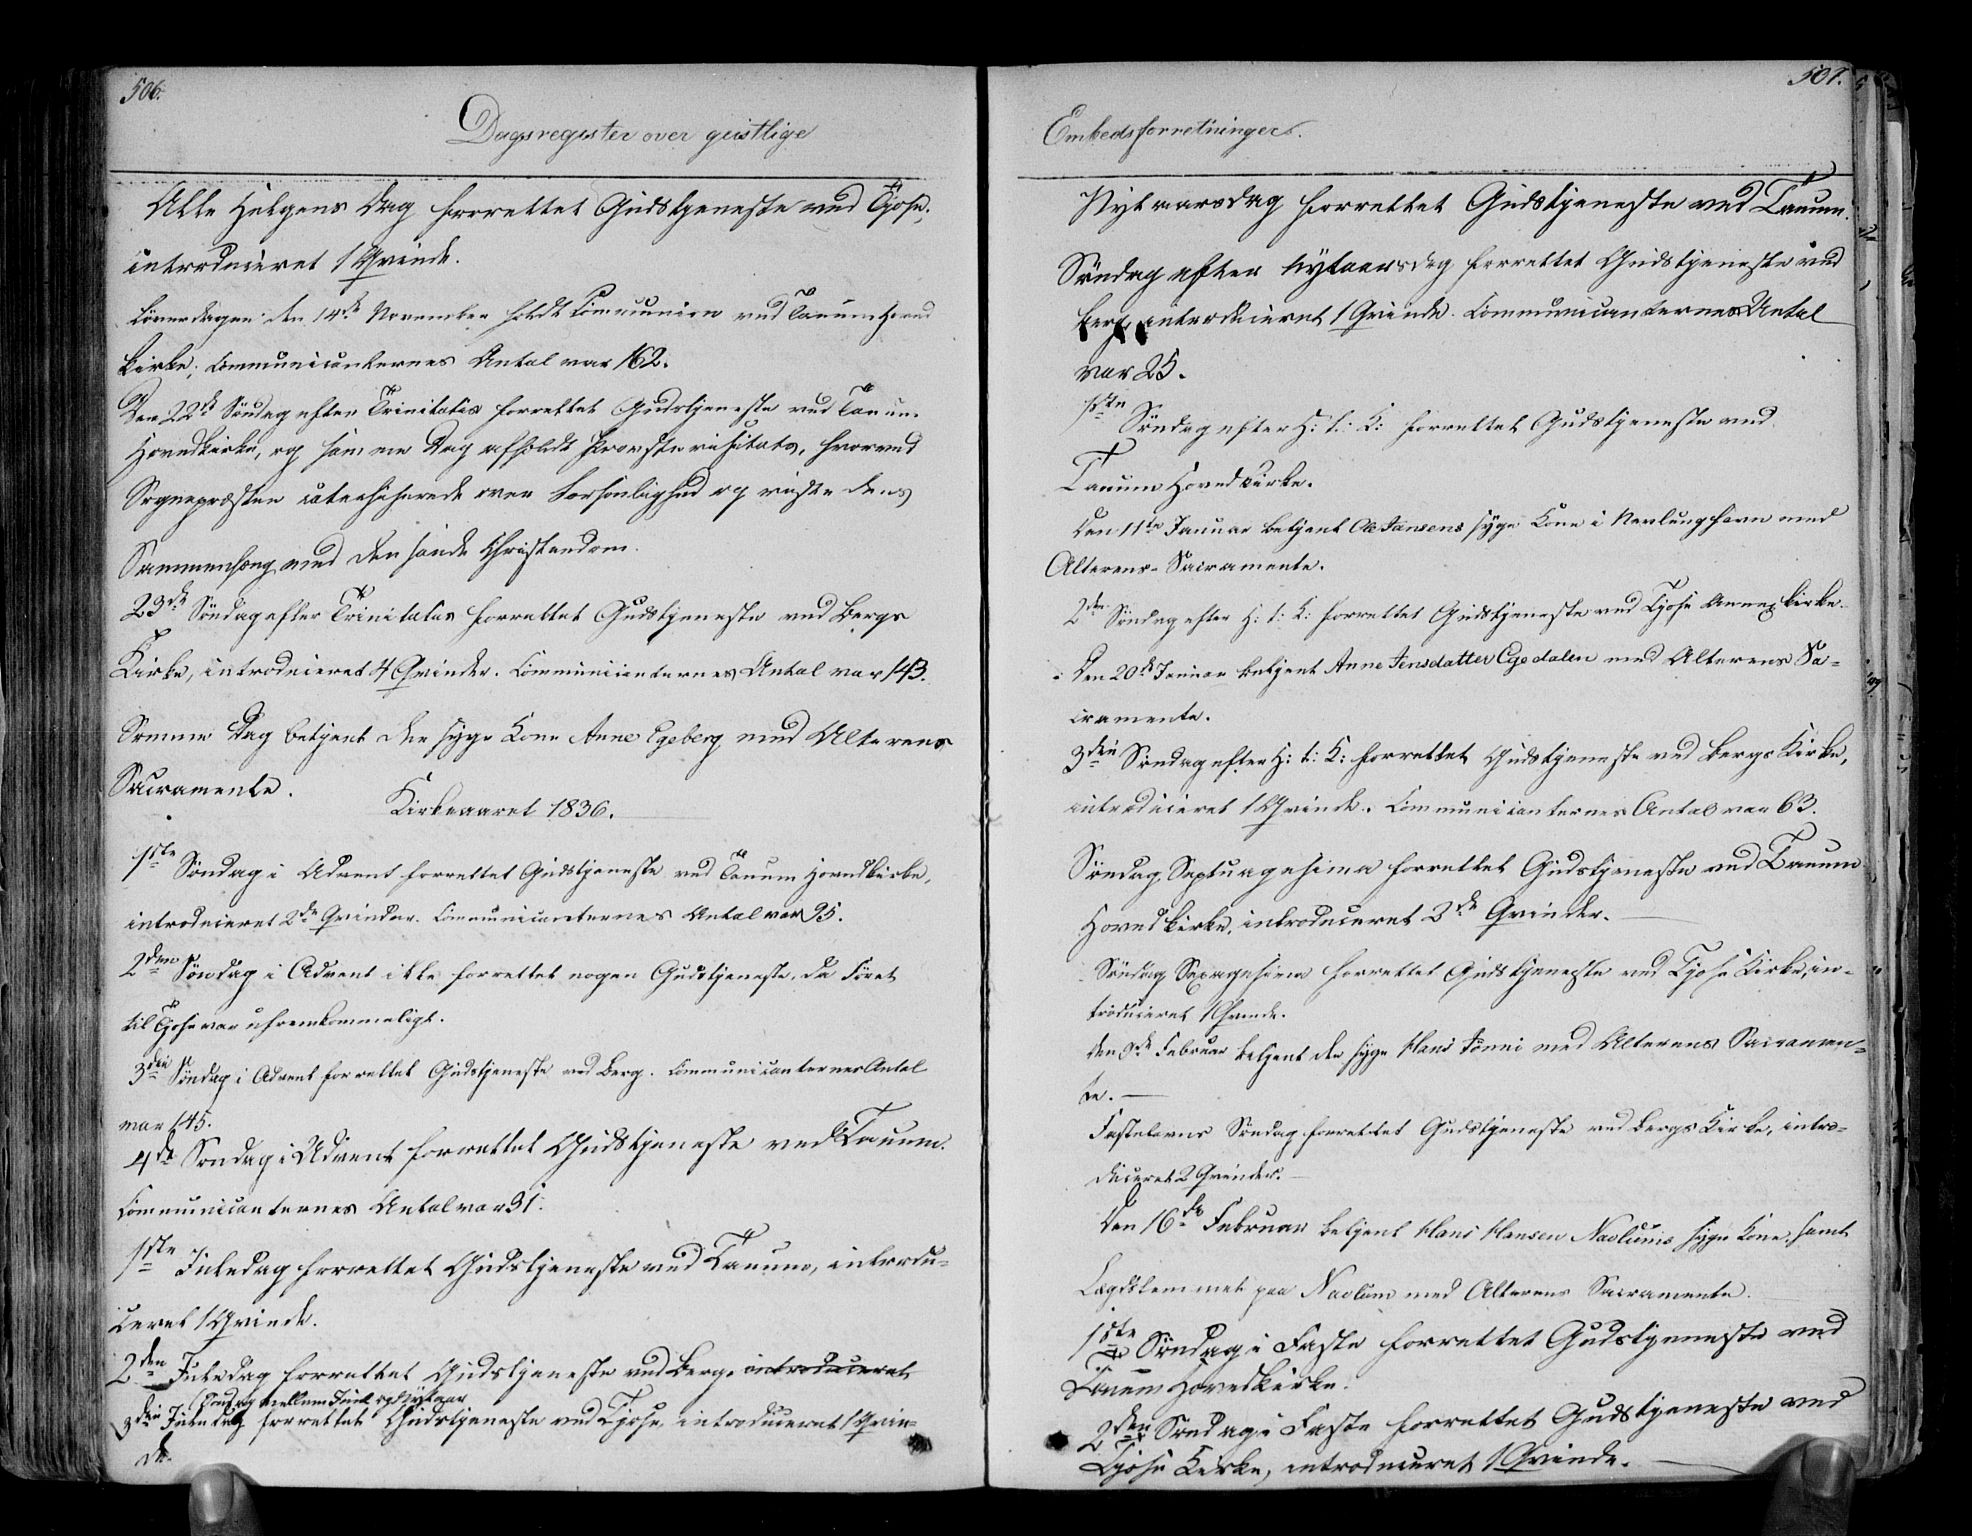 506.
Dagsregister over geistlige
Alle Helgens Dag forrettet Gudstjeneste ved Tjose,
introduceret 1 Qvinde.
Løverdagen den 14de November holdt Communion ved Tanum Hoved
kirke; Communicanternes Antal var 162.
Den 22de Søndag efter Trinitatis forrettet Gudstjeneste ved Tanum
Hovedkirke, og samme Dag afholdt Provstevisitats, hvorved
Sognepræsten catechiserede over Forsonlighed og viiste dens
Sammenhæng med den sande Christendom.
23de Søndag efter Trinitatis forrettet Gudstjeneste ved Bergs
Kirke, introduceret 4 Qvinder. Communicanternes Antal var 143.
Samme Dag betjent den syge Kone Anne Egeberg med Alterens
Sacramente.
Kirkeaaret 1836.
1ste Søndag i Advent forrettet Gudstjeneste ved Tanum Hovedkirke,
introduceret 2de Qvinder. Communicanternes Antal var 95.
2den Søndag i Advent ikke forrettet nogen Gudstjeneste, da Føret
til Tjose var ufremkommeligt.
3die Søndag i Advent forrettet Gudstjeneste ved Berg. Communicanternes Antal
var 145.
4de Søndag i Advent forrettet Gudstjeneste ved Tanum.
Communicanternes Antal var 31.
1ste Juledag forrettet Gudstjeneste ved Tanum, introdu-
ceret 1 Qvinde.
2den Juledag forrettet Gudstjeneste ved Berg. introduceret
(Søndag mellem Juul og Nytaar
3die Juledag forrettet Gudstjeneste ved Tjose, introduceret 1 Qvin-
de.
507.
Embedsforretninger.
Nytaarsdag forrettet Gudstjeneste ved Tanum.
Søndag efter Nytaarsdag forrettet Gudstjeneste ved
Berg, introduceret 1 Qvinde. Communicanternes Antal
var 25.
1ste Søndag efter H: t: K: forrettet Gudstjeneste ved
Tanum Hovedkirke.
Den 11te Januar betjent Ole Jansens syge Kone i Nevlunghavn med
Alterens Sacramente.
2den Søndag efter H: t: K: forrettet Gudstjeneste ved Tjose Annexkirke.
Den 20de Januar betjent Anne Jensdatter Egedalen med Alterens Sa-
cramente.
3die Søndag efter H: t: K: forrettet Gudstjeneste ved Bergs Kirke,
introduceret 1 Qvinde. Communicanternes Antal var 63.
Søndag Septuagesima forrettet Gudstjeneste ved Tanum
Hovedkirke, introduceret 2de Qvinder.
Søndag Sexagesima forrettet Gudstjeneste ved Tjose Kirke, in-
troduceret 1 Qvinde.
Den 9de Februar betjent den syge Hans Tønni med Alterens Sacramen-
te.
Fastelavns Søndag forrettet Gudstjeneste ved Bergs Kirke, intro-
duceret 2 Qvinder.
Den 16de Februar betjent Hans Hansen Naclums syge Kone, samt
Lægdslemmet paa Naclum med Alterens Sacramente.
1ste Søndag i Faste forrettet Gudstjeneste ved
Tanum Hovedkirke.
2den Søndag i Faste forrettet Gudstjeneste ved
Tjose Kirke, introduceret 1 Qvinde.